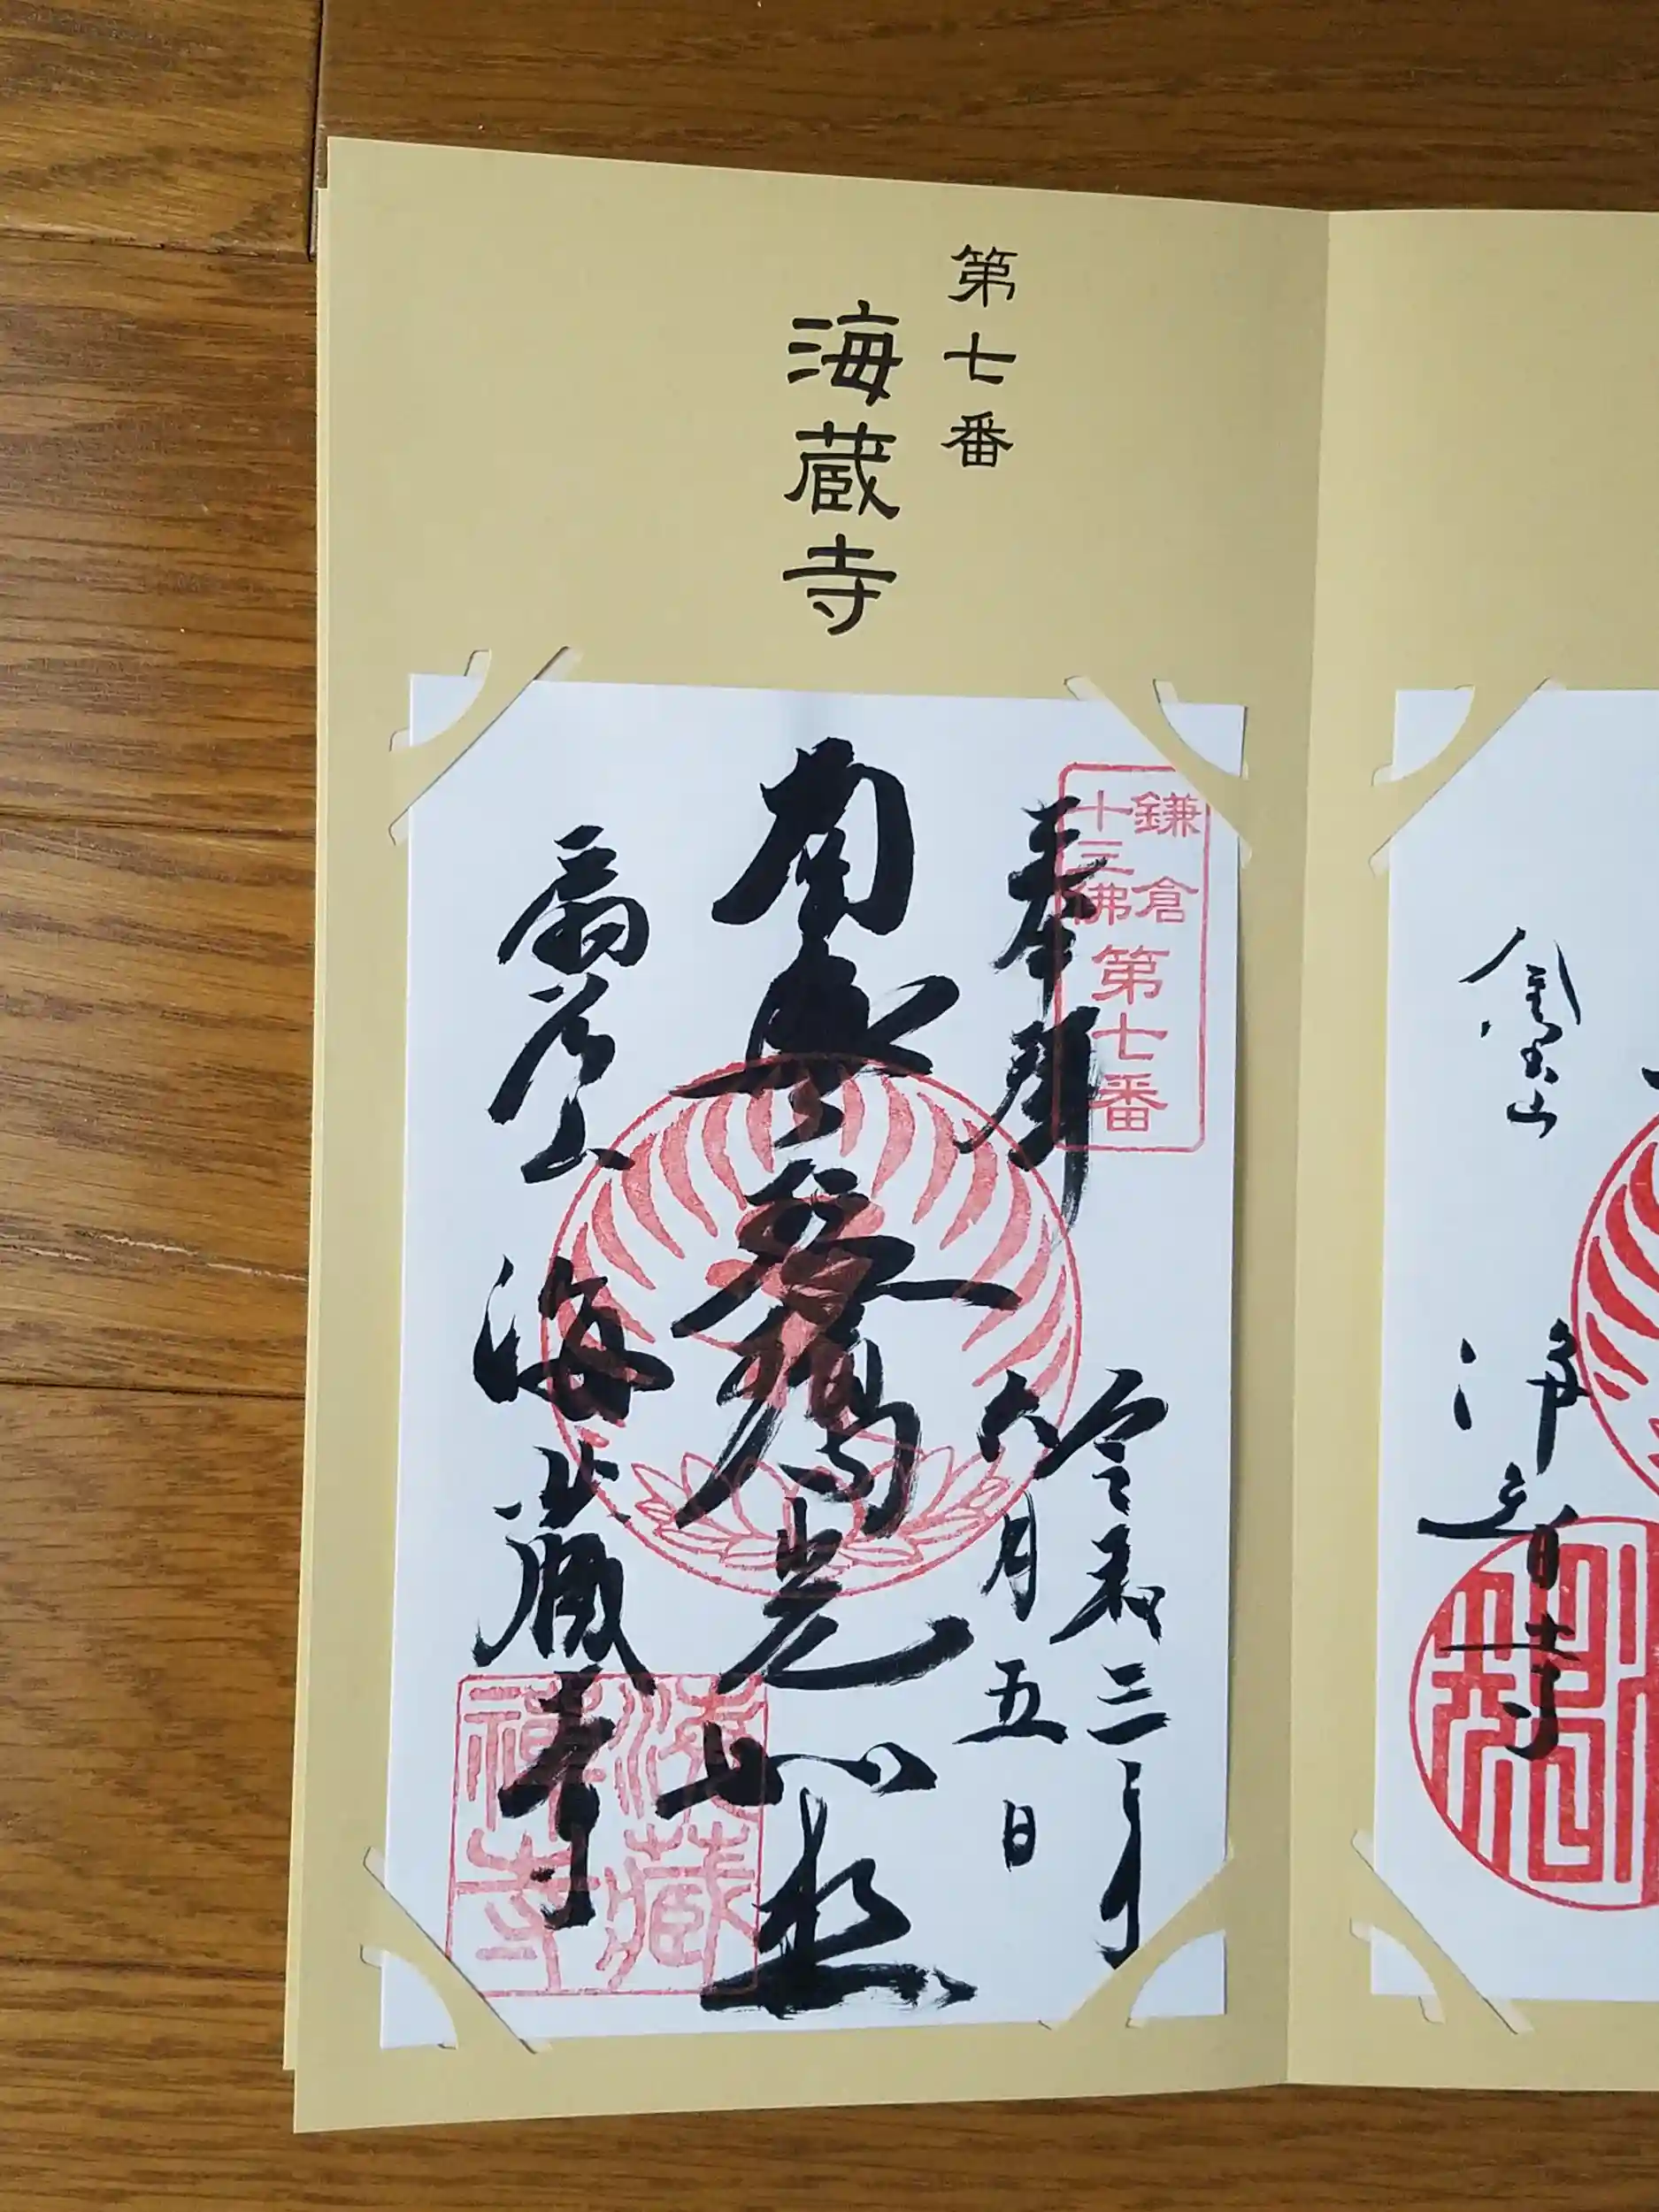 第七番
海蔵寺
鎌倉
十三佛
第七番
奉拝
令和三年
六月五日
南無
扇谷山 海蔵寺
海藏
禅寺
金宝山 浄智寺